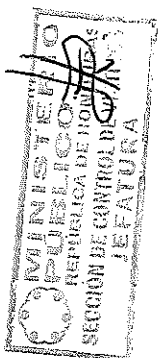 MINISTERIO
PUBLICO
REPUBLICA DE HONDURAS
SECCION DE CONTROL DE
JEFATURA